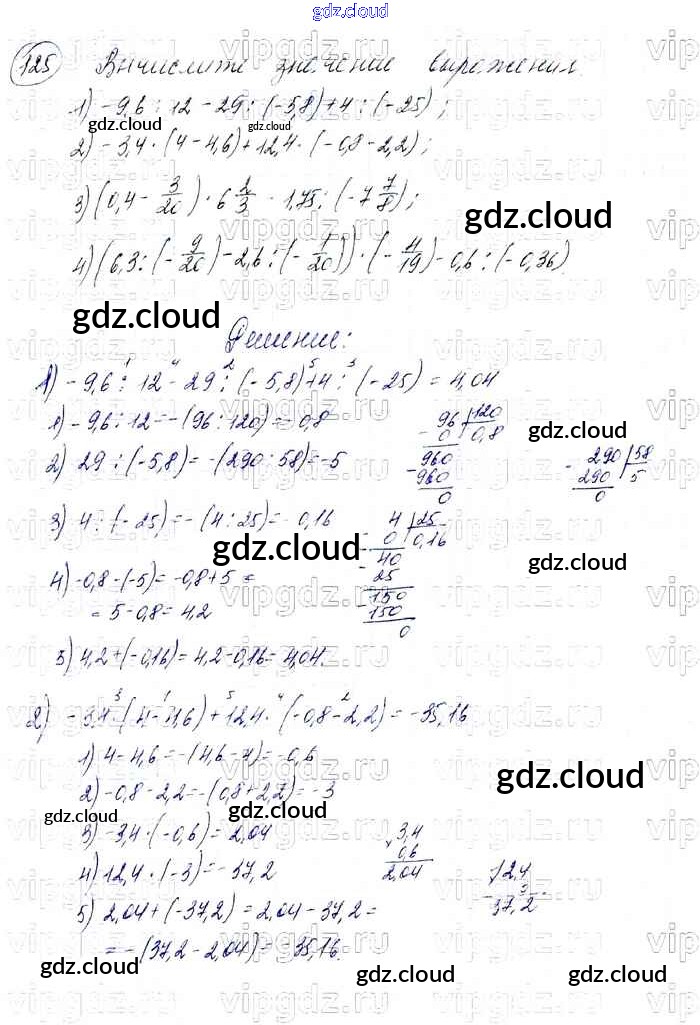 gdz.cloud
125 Вычислите значение выражения.
1) -9,6 : 12 - 29 : (-5,8) + 4 : (-25);
2) -3,4 · (4 - 4,6) + 12,4 · (-0,8 - 2,2);
3) (0,4 - 3/20) · 6 2/3 - 1,75 : (-7 7/8);
4) (6,3 : (-9/20) - 2,6 : (-1/20)) · (-4/19) - 0,6 : (-0,36)
Решение:
1) -9,6 : 12 - 29 : (-5,8) + 4 : (-25) = 4,04
1) -9,6 : 12 = -(96 : 120) = -0,8
2) 29 : (-5,8) = -(290 : 58) = -5
3) 4 : (-25) = -(4 : 25) = -0,16
4) -0,8 - (-5) = -0,8 + 5 =
= 5 - 0,8 = 4,2
5) 4,2 + (-0,16) = 4,2 - 0,16 = 4,04.
96 120
- 0 0,8
960
- 960
0
- 290 58
290 5
0
4 25
- 0 0,16
- 40
25
- 150
150
0
2) -3,4 · (4 - 4,6) + 12,4 · (-0,8 - 2,2) = -35,16
1) 4 - 4,6 = -(4,6 - 4) = -0,6
2) -0,8 - 2,2 = -(0,8 + 2,2) = -3
3) -3,4 · (-0,6) = 2,04
4) 12,4 · (-3) = -37,2
5) 2,04 + (-37,2) = 2,04 - 37,2 =
= -(37,2 - 2,04) = -35,16.
× 3,4
0,6
2,04
× 12,4
3
37,2